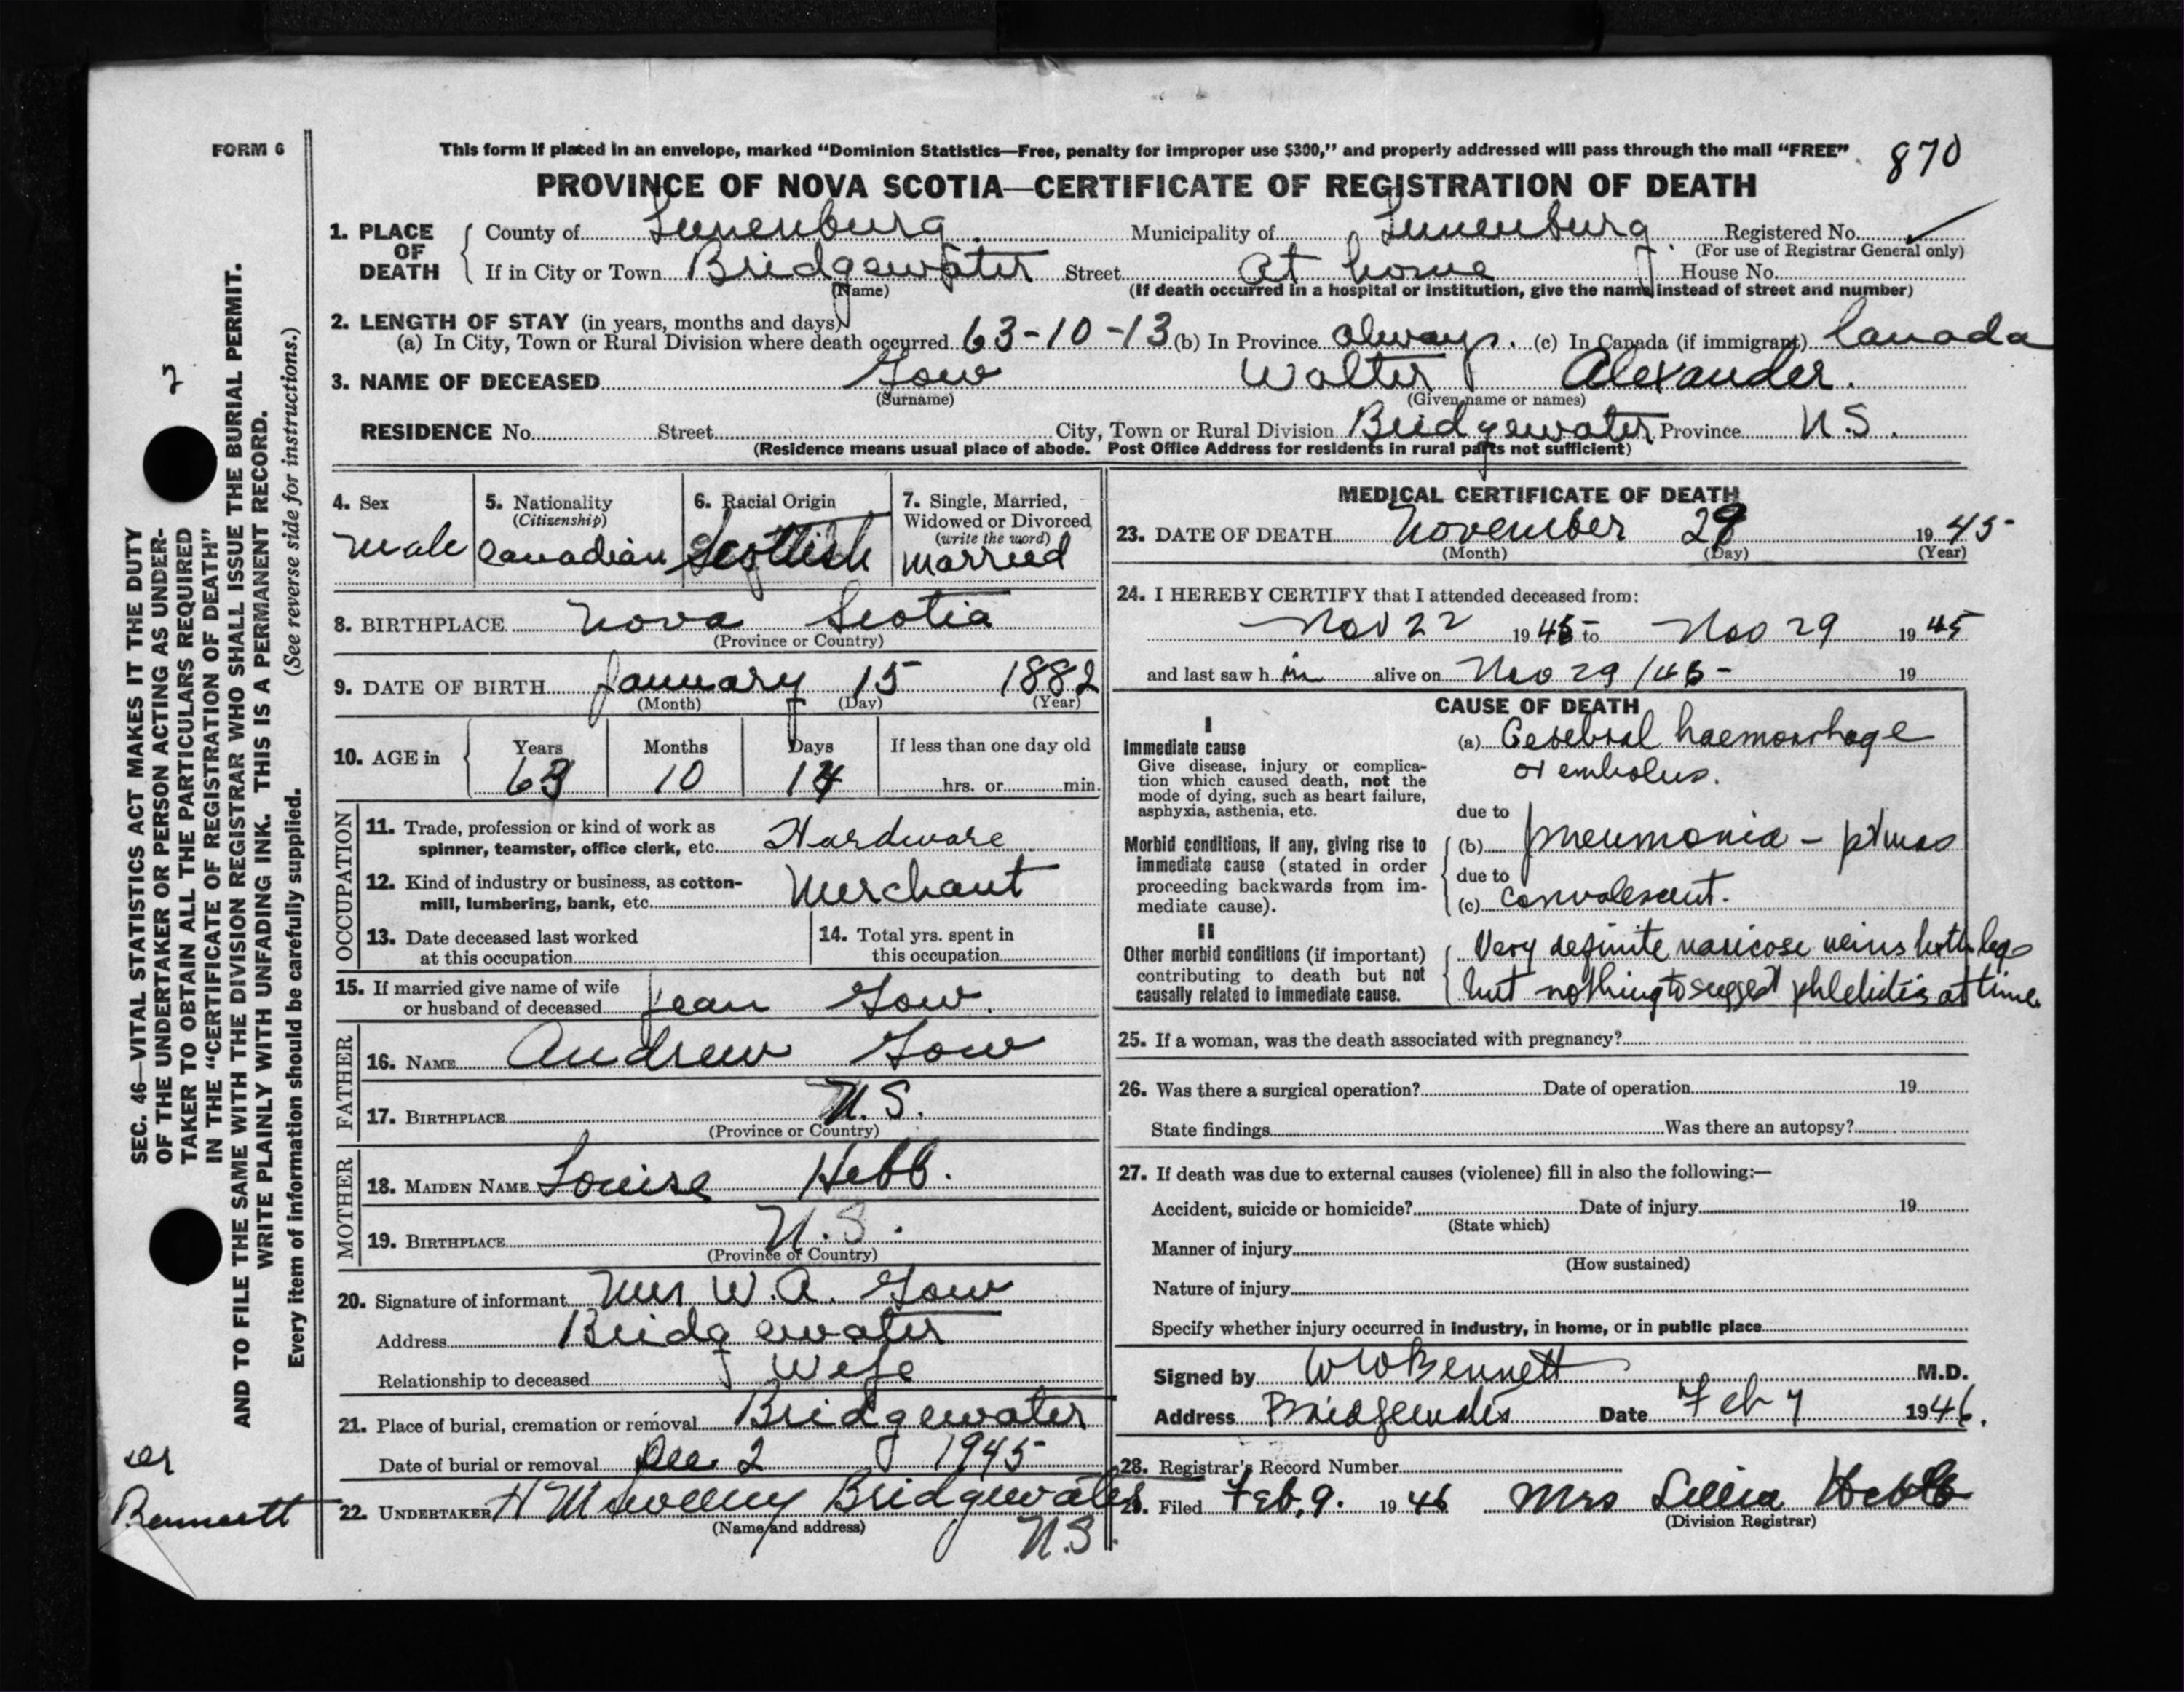 FORM 6
This form if placed in an envelope, marked "Dominion Statistics—Free, penalty for improper use $300," and properly addressed will pass through the mail "FREE" 870
PROVINCE OF NOVA SCOTIA—CERTIFICATE OF REGISTRATION OF DEATH
1. PLACE OF DEATH County of Lunenburg Municipality of Lunenburg Registered No. ✓
(For use of Registrar General only)
If in City or Town Bridgewater Street At home House No.
(Name) (If death occurred in a hospital or institution, give the name instead of street and number)
2. LENGTH OF STAY (in years, months and days)
(a) In City, Town or Rural Division where death occurred 63-10-13 (b) In Province always. (c) In Canada (if immigrant) Canada
3. NAME OF DECEASED Gow Walter Alexander.
(Surname) (Given name or names)
RESIDENCE No. Street City, Town or Rural Division Bridgewater Province N.S.
(Residence means usual place of abode. Post Office Address for residents in rural parts not sufficient)
4. Sex
male
5. Nationality
(Citizenship)
Canadian
6. Racial Origin
Scottish
7. Single, Married,
Widowed or Divorced
(write the word)
married
8. BIRTHPLACE Nova Scotia
(Province or Country)
9. DATE OF BIRTH January 15 1882
(Month) (Day) (Year)
10. AGE in Years Months Days If less than one day old
63 10 14 hrs. or min.
OCCUPATION
11. Trade, profession or kind of work as
spinner, teamster, office clerk, etc. Hardware
12. Kind of industry or business, as cotton-
mill, lumbering, bank, etc. Merchant
13. Date deceased last worked
at this occupation
14. Total yrs. spent in
this occupation
15. If married give name of wife
or husband of deceased Jean Gow.
FATHER
16. NAME Andrew Gow
17. BIRTHPLACE N.S.
(Province or Country)
MOTHER
18. MAIDEN NAME Louise Hebb.
19. BIRTHPLACE N.S.
(Province or Country)
20. Signature of informant Mrs W.A. Gow
Address Bridgewater
Relationship to deceased Wife
21. Place of burial, cremation or removal Bridgewater
Date of burial or removal Dec 2 1945
22. UNDERTAKER H M Sweeny Bridgewater
(Name and address) N.S.
MEDICAL CERTIFICATE OF DEATH
23. DATE OF DEATH November 29 1945
(Month) (Day) (Year)
24. I HEREBY CERTIFY that I attended deceased from:
Nov 22 1945 to Nov 29 1945
and last saw h im alive on Nov 29/45- 19
CAUSE OF DEATH
I
Immediate cause
Give disease, injury or complica-
tion which caused death, not the
mode of dying, such as heart failure,
asphyxia, asthenia, etc.
(a) Cerebral haemorrhage
or embolus.
due to
Morbid conditions, if any, giving rise to
immediate cause (stated in order
proceeding backwards from im-
mediate cause).
(b) pneumonia - pt was
due to
(c) convalescent.
II
Other morbid conditions (if important)
contributing to death but not
causally related to immediate cause.
Very definite varicose veins both legs
but nothing to suggest phlebitis at time.
25. If a woman, was the death associated with pregnancy?
26. Was there a surgical operation? Date of operation 19
State findings Was there an autopsy?
27. If death was due to external causes (violence) fill in also the following:—
Accident, suicide or homicide? Date of injury 19
(State which)
Manner of injury
(How sustained)
Nature of injury
Specify whether injury occurred in industry, in home, or in public place
Signed by W W Bennett M.D.
Address Bridgewater Date Feb 7 1946.
28. Registrar's Record Number
29. Filed Feb, 9. 1946 Mrs Hebb
(Division Registrar)
SEC. 46—VITAL STATISTICS ACT MAKES IT THE DUTY
OF THE UNDERTAKER OR PERSON ACTING AS UNDER-
TAKER TO OBTAIN ALL THE PARTICULARS REQUIRED
IN THE "CERTIFICATE OF REGISTRATION OF DEATH"
AND TO FILE THE SAME WITH THE DIVISION REGISTRAR WHO SHALL ISSUE THE BURIAL PERMIT.
WRITE PLAINLY WITH UNFADING INK. THIS IS A PERMANENT RECORD.
Every item of information should be carefully supplied. (See reverse side for instructions.)
Bennett